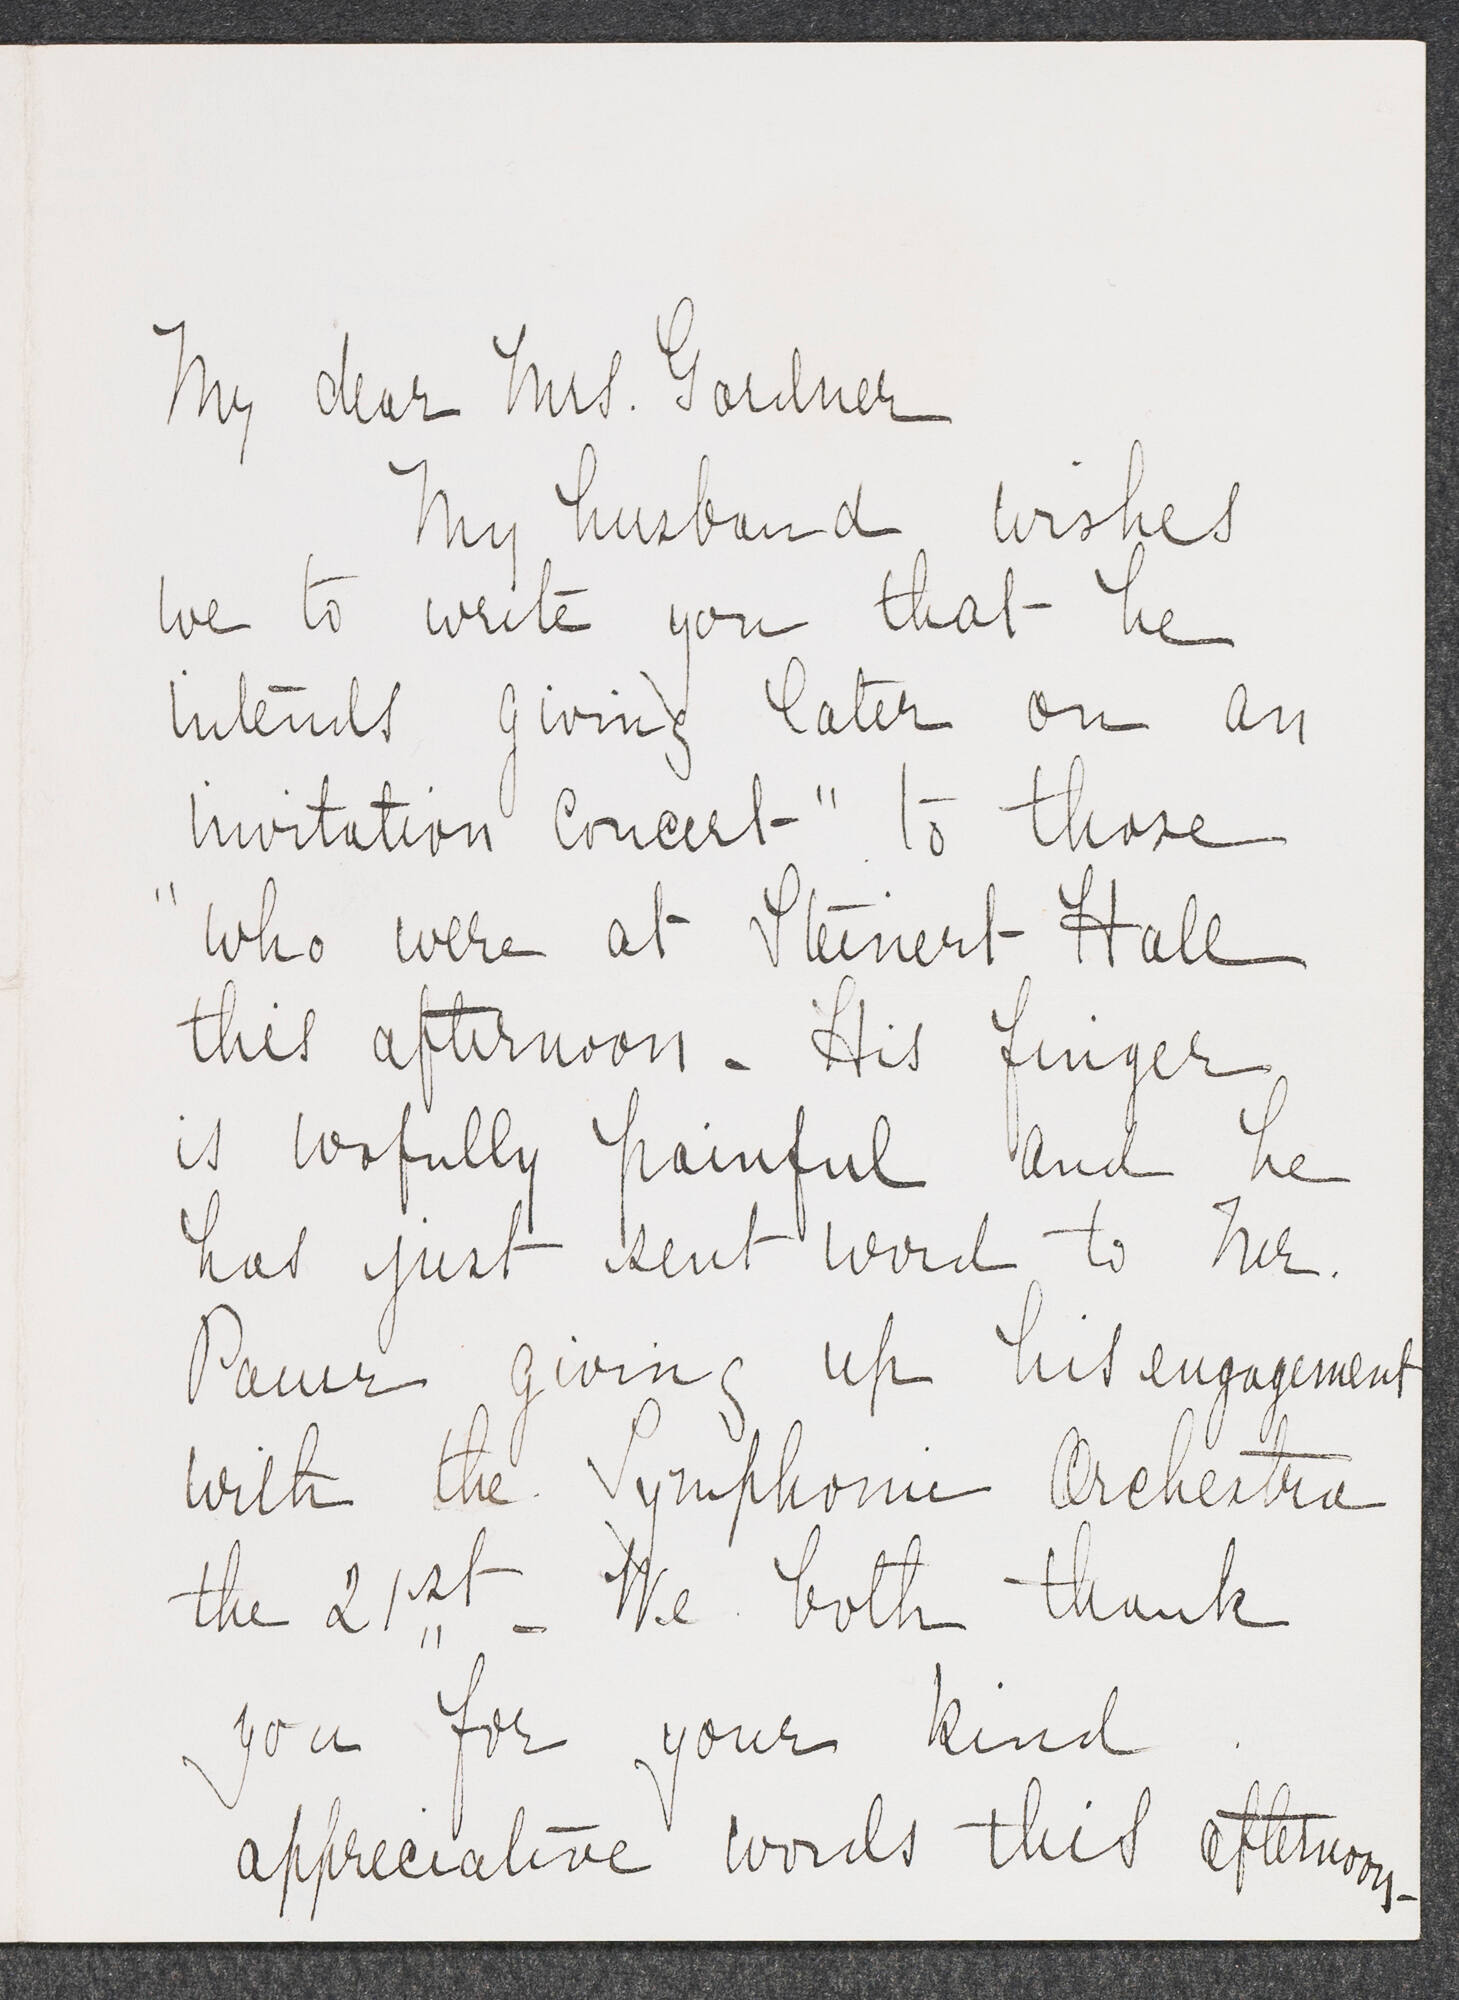 My dear Mrs. Gardner
My husband wishes
me to write you that he
intends giving later on an
invitation concert" to those
"who were at Steinert Hall
this afternoon. - His finger
is wofully painful and he
has just sent word to Mr.
Paur giving up his engagement
with the Symphonie Orchestra
the 21st - We both thank
you for your kind
appreciative words this afternoon-